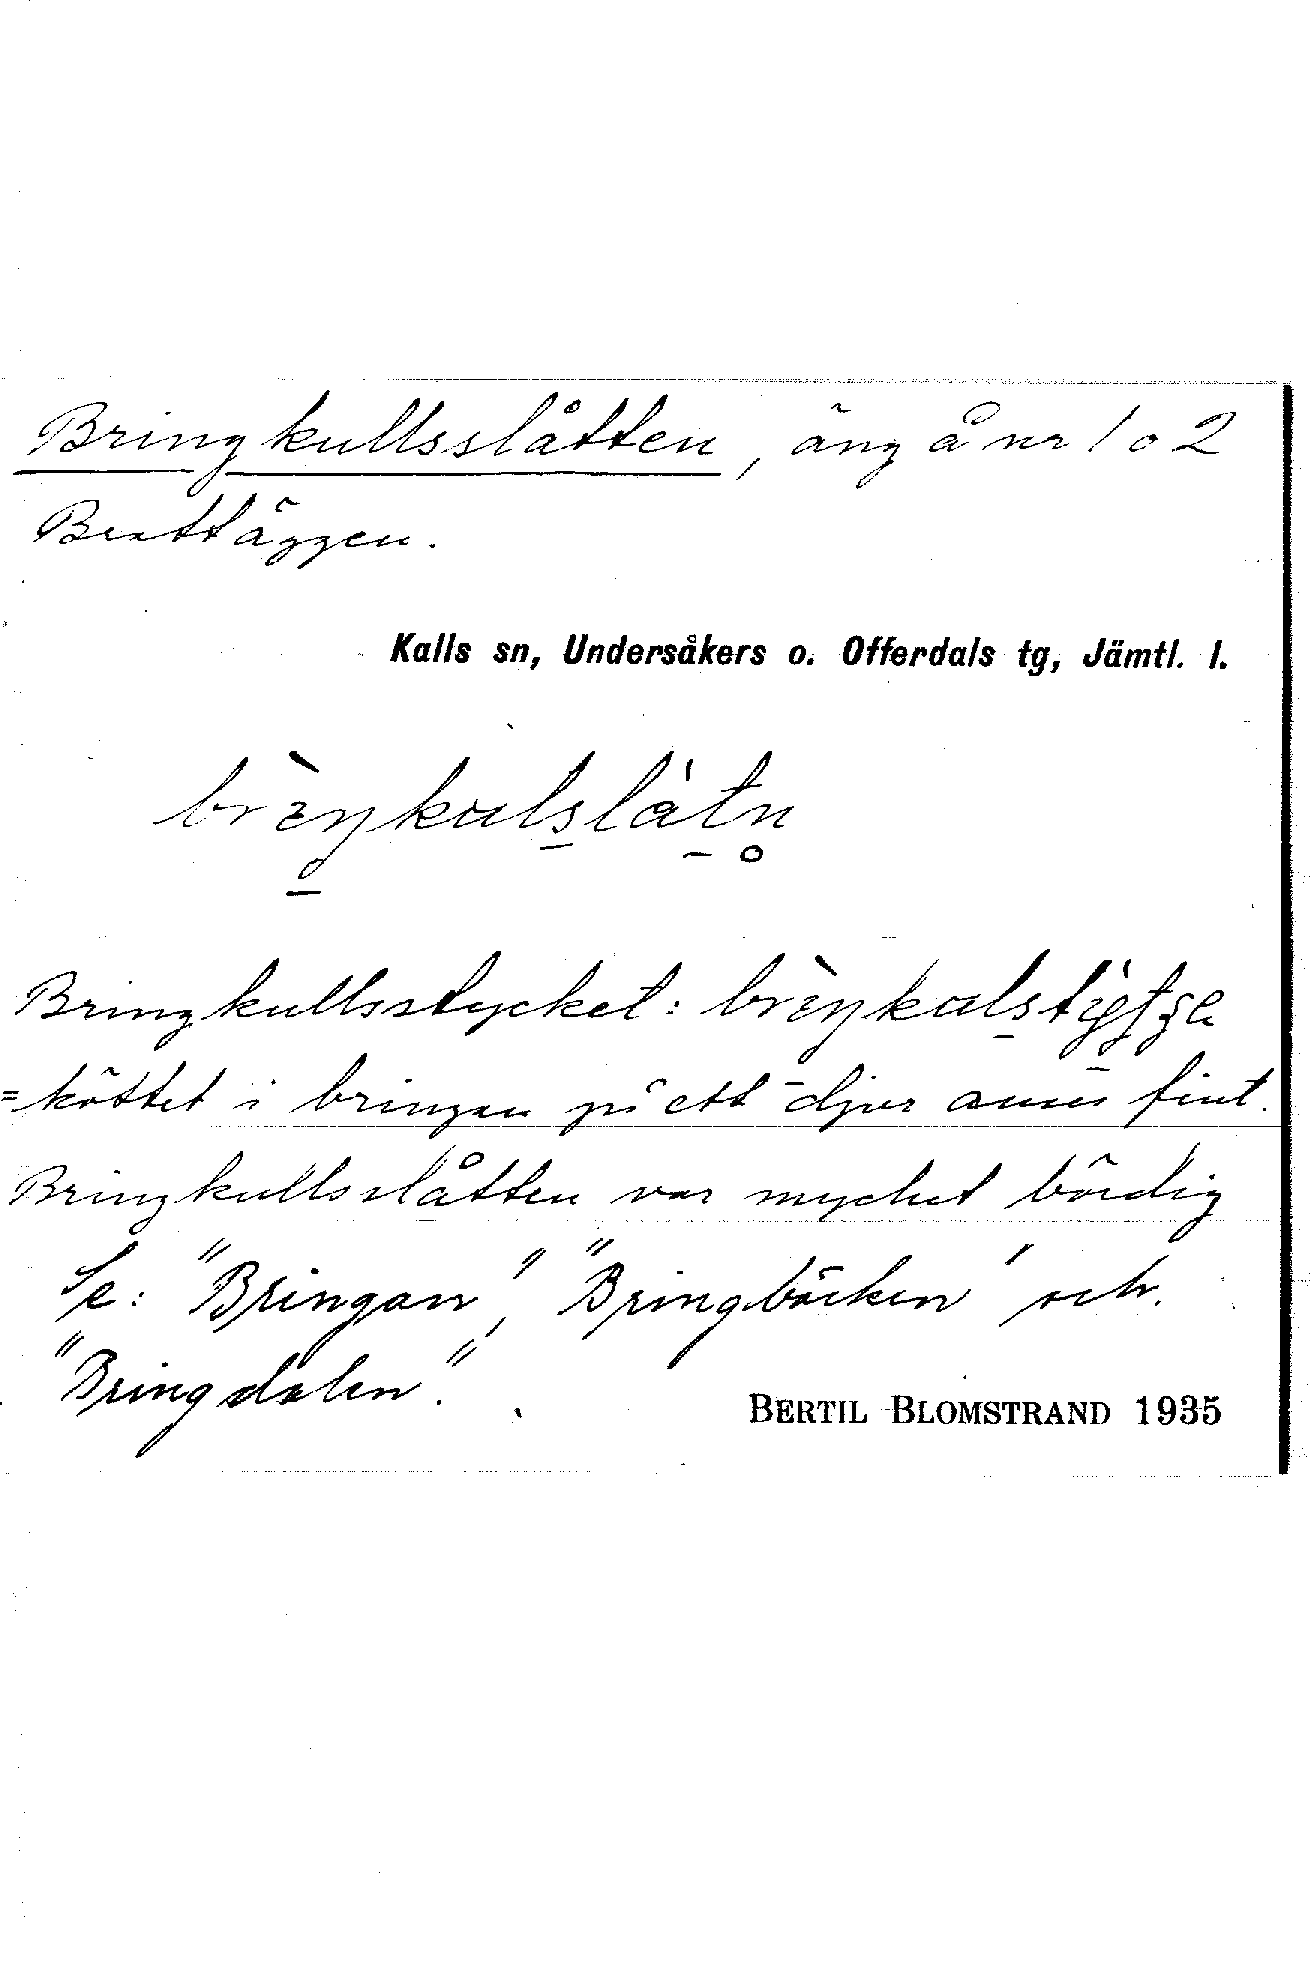 Bringkullsslåtten, äng å nr 1 o 2
Brattäggen.
Kalls sn, Undersåkers o. Offerdals tg, Jämtl. l.
brèŋkulslåtn̥
Bringkullsstycket:
= köttet i bringan på ett djur anses fint.
Bringkullsslåtten var mycket bördig
Se: "Bringan", "Bringbäcken" och.
"Bringdalen".
BERTIL BLOMSTRAND 1935